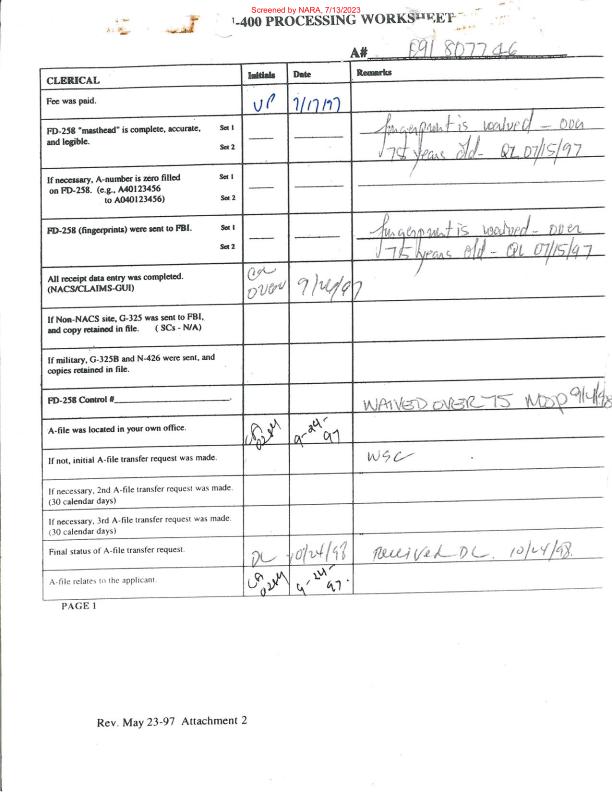 Screened by NARA, 7/13/2023
-400 PROCESSING WORKSHEET
A# 091 807746
CLERICAL Initials Date Remarks
Fee was paid. VP 7/17/97
FD-258 "masthead" is complete, accurate, Set 1 fingerprint is waived - over
and legible. Set 2 75 years old - QL 07/15/97
If necessary, A-number is zero filled Set 1
on FD-258. (e.g., A40123456 Set 2
to A040123456)
FD-258 (fingerprints) were sent to FBI. Set 1 fingerprint is waived - over
Set 2 75 years old - QL 07/15/97
All receipt data entry was completed.
(NACS/CLAIMS-GUI)
If Non-NACS site, G-325 was sent to FBI,
and copy retained in file. ( SCs - N/A)
If military, G-325B and N-426 were sent, and
copies retained in file.
FD-258 Control # WAIVED OVER 75 9/4/98
A-file was located in your own office. CA 0284 9-24-97
If not, initial A-file transfer request was made. WSC
If necessary, 2nd A-file transfer request was made.
(30 calendar days)
If necessary, 3rd A-file transfer request was made.
(30 calendar days)
Final status of A-file transfer request. DC 10/24/98 received DC. 10/24/98.
A-file relates to the applicant. CA 0284 9-24-97.
PAGE 1
Rev. May 23-97 Attachment 2